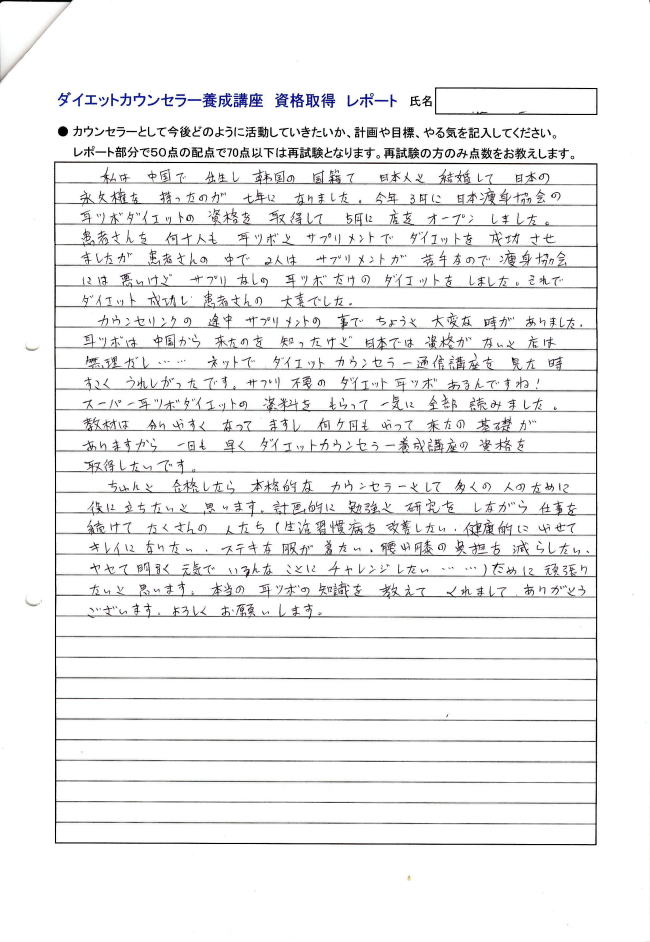 ダイエットカウンセラー養成講座 資格取得 レポート 氏名
● カウンセラーとして今後どのように活動していきたいか、計画や目標、やる気を記入してください。
レポート部分で50点の配点で70点以下は再試験となります。再試験の方のみ点数をお教えします。
私は 中国で 出生し 韓国の 国籍て 日本人と 結婚して 日本の
永久権を 持ったのが 七年に なりました。今年 3月に 日本痩身協会の
耳ツボダイエットの 資格を 取得して 5月に 店を オープン しました。
患者さんを 何十人も 耳ツボと サプリメントで ダイエットを 成功 させ
ましたが 患者さんの 中で 2人は サプリメントが 苦手なので 痩身協会
には 悪いけど サプリ なしの 耳ツボだけの ダイエットを しました。それで
ダイエット 成功し 患者さんの 大喜でした。
カウンセリンクの 途中 サプリメントの 事で ちょうと 大変な 時が ありました。
耳ツボは 中国から 来たのを 知ったけど 日本では 資格が ないと 店は
無理だし…… ネットで ダイエット カウンセラー通信講座を 見た 時
すごく うれしがったです。サプリ 不要の ダイエット 耳ツボ あるんですね!
スーパー耳ツボダイエットの 資料を もらって 一気に 全部 読みました。
教材は 分りやすく なって ますし 何ヶ月も やって 来たの 基礎が
ありますから 一日も 早く ダイエットカウンセラー養成講座の 資格を
取得したいです。
ちゃんと 合格したら 本格的な カウンセラーとして 多くの 人のために
役に立ちたいと 思います。計画的に 勉強と 研究を しながら 仕事を
続けて たくさんの 人たち(生活習慣病を 改善したい、健康的に やせて
キレイに なりたい、ステキな 服が 着たい、腰や膝の 負担を 減らしたい、
ヤセて 明るく 元気で いろんな ことに チャレンジしたい ……)ために 頑張り
たいと 思います。本当の 耳ツボの 知識を 教えて くれまして ありがとう
ございます。よろしく お願いします。